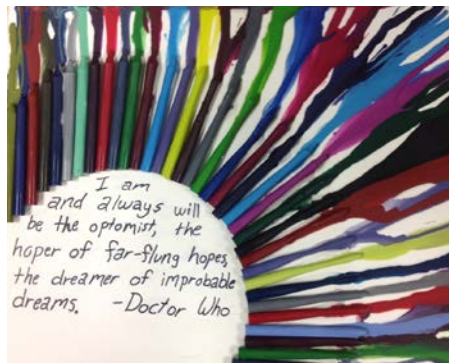 I am
and always will
be the optomist, the
hoper of far-flung hopes,
the dreamer of improbable
dreams. -Doctor Who